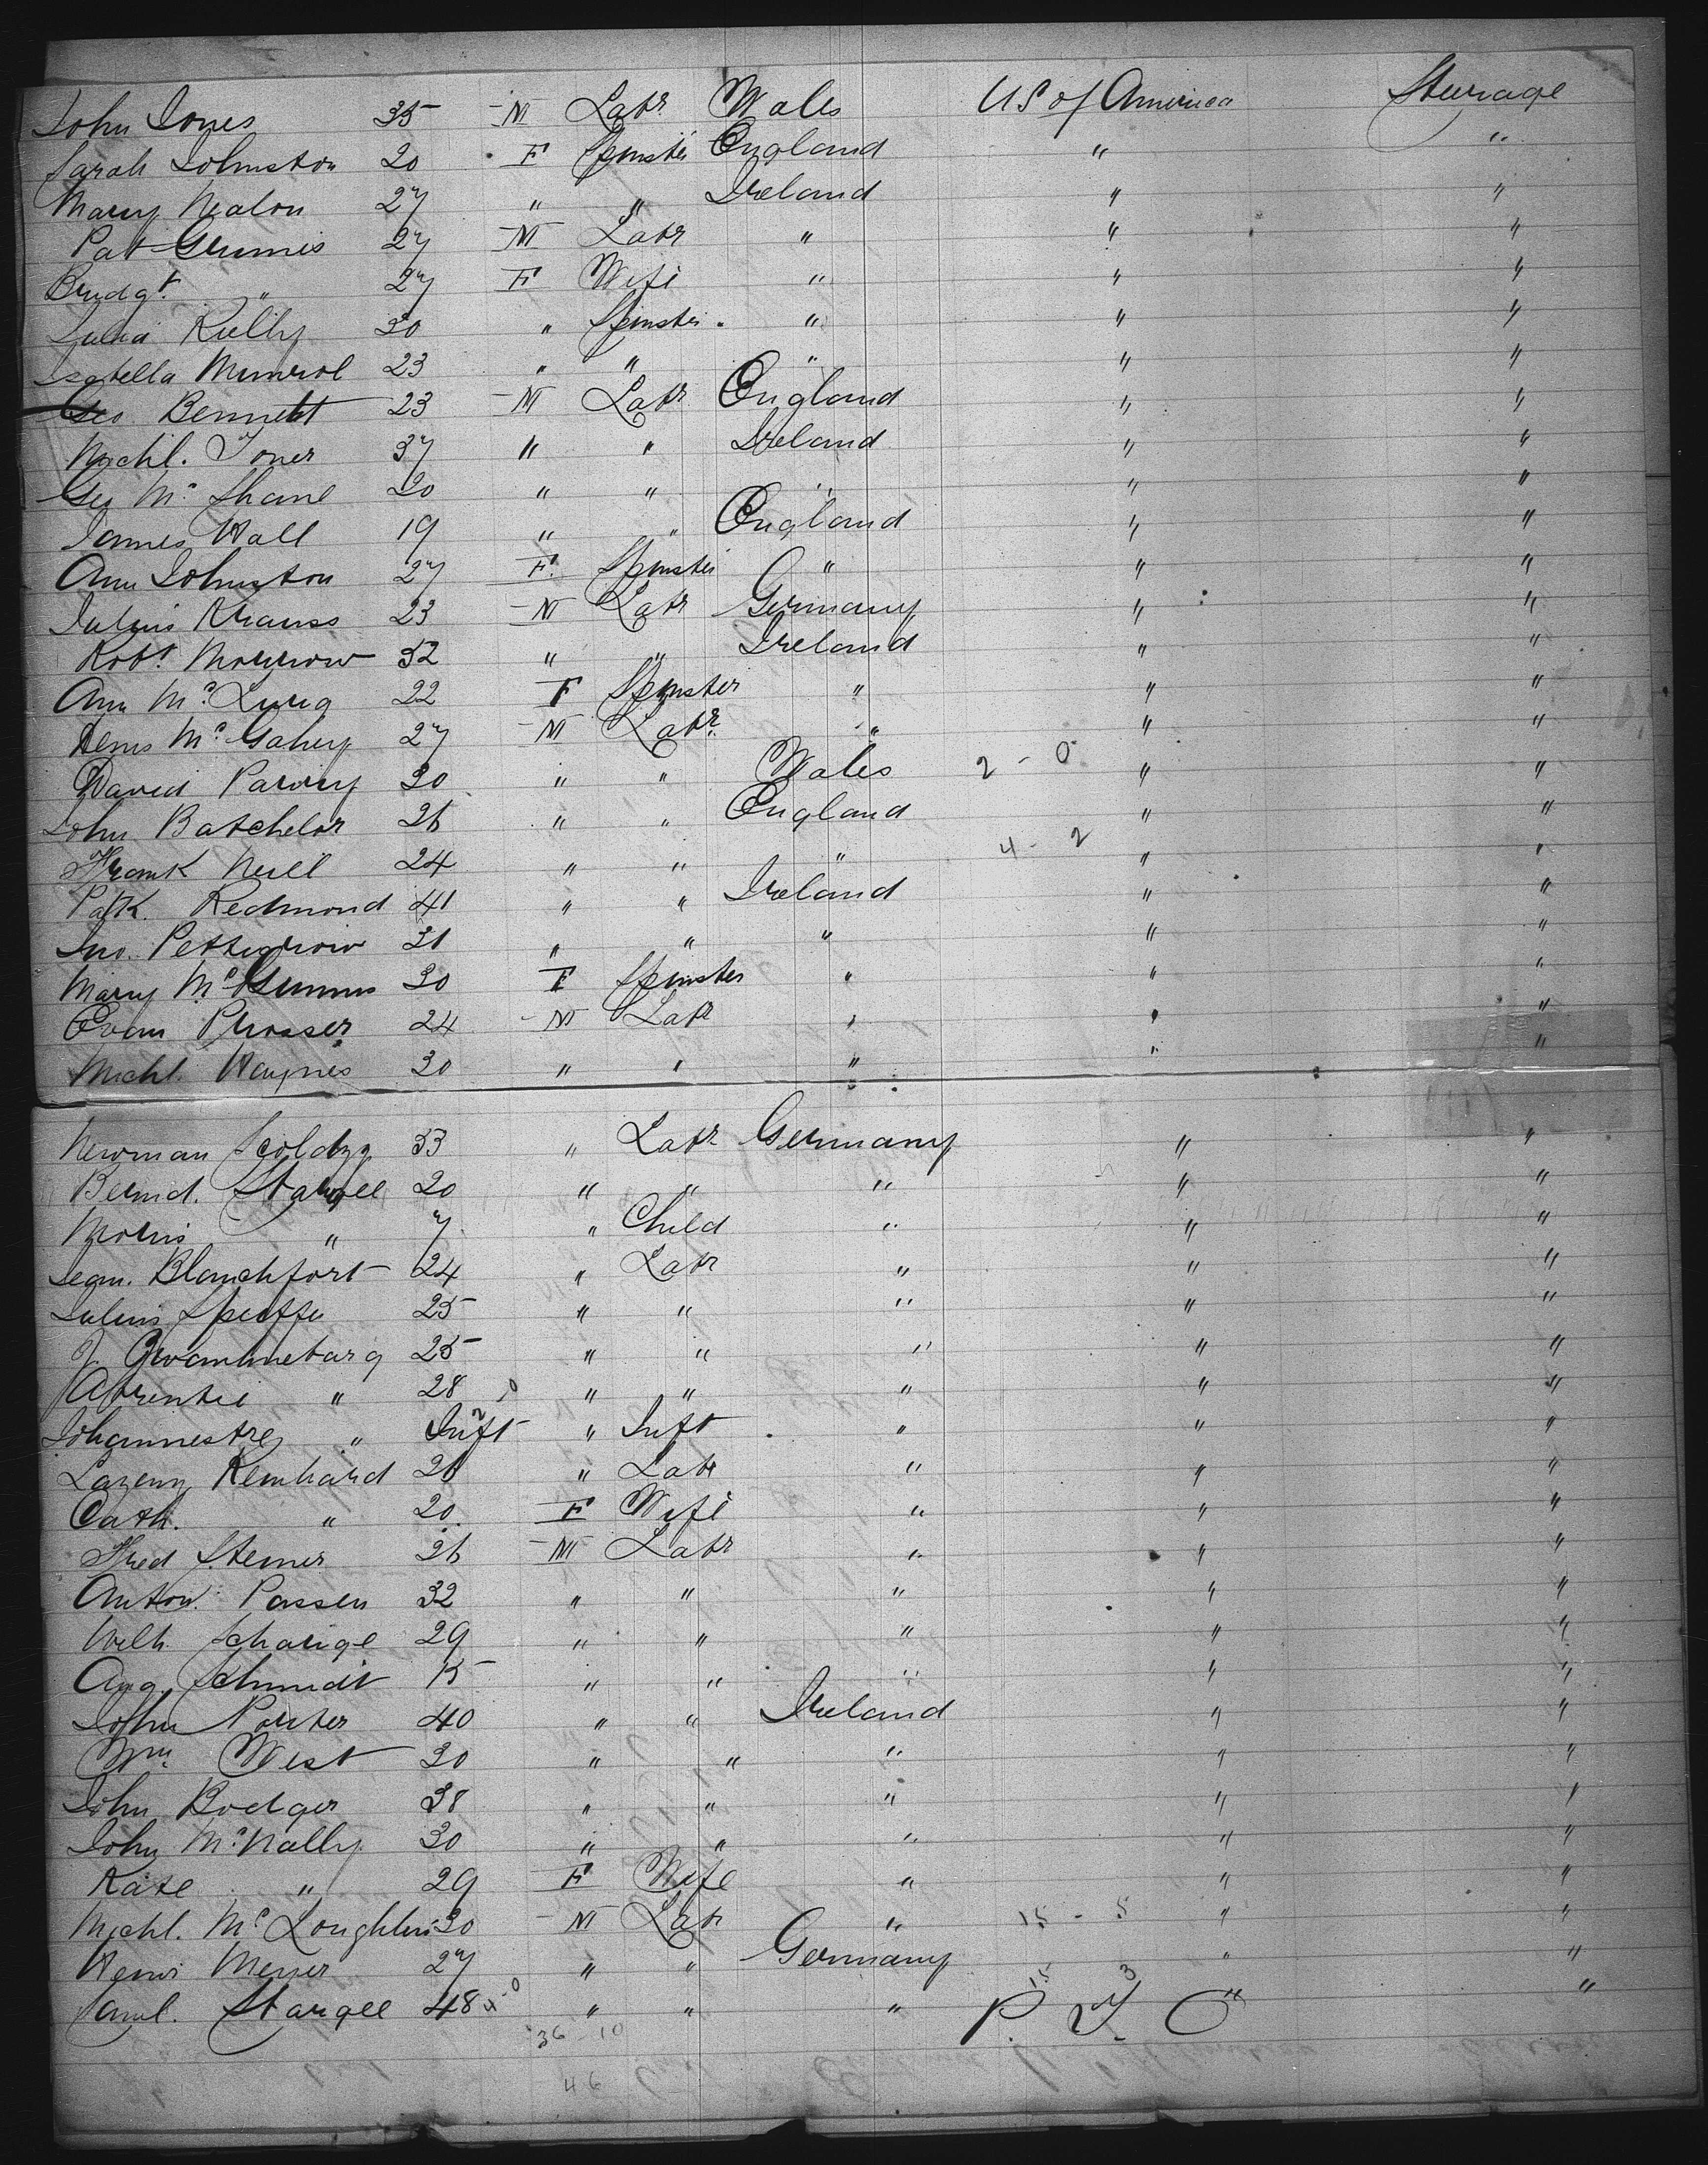 John Jones 35 M Labr Wales U S of America Steerage
Sarah Johnston 20 F Spinster England " "
Mary Nealon 27 " " Ireland " "
Pat 27 M Labr " " "
Bridgt. " 27 F Wife " " "
Julia Kielly 30 " Spinster " " "
Isabella 23 " " " " "
Geo Bennett 23 M Labr England " "
Michl. Toner 37 " " Ireland " "
Geo Mc Shane 20 " " " " "
James Wall 19 " " England " "
Ann Johnston 27 F. Spinster " " "
Julius Krauss 23 M Labr Germany " "
Robt. Morrow 32 " " Ireland " "
Ann Mc Lurg 22 F Spinster " " "
Denis Mc Gahey 27 M Labr. " " "
David Parry 30 " " Wales 2 - 0 " "
John Batchelor 26 " " England " "
Frank Neill 24 " " " 4 - 2 " "
Patk. Redmond 41 " " Ireland " "
Jno. Pettigrew 21 " " " " "
Mary Mc 30 F Spinster " " "
Evan Prosser 24 M Labr " " "
Michl. Haynes 30 " " " " "
Newman 33 " Labr Germany " "
Bernd. Stargell 20 " " " " "
Morris " 7 " Child " " "
Jean. Blanchfort 24 " Labr " " "
Julius 25 " " " " "
J. 25 " " " " "
" 28 " " " " "
" Inft " Inft " " "
Reinhard 26 " Labr " " "
Cath. " 20 F Wife " " "
Fred Steiner 26 M Labr " " "
Anton Passen 32 " " " " "
Wilh. 29 " " " " "
Aug. Schmidt 15 " " " " "
John Porter 40 " " Ireland " "
Wm. West 30 " " " " "
John Bodger 38 " " " " "
John Mc Nally 30 " " " " "
Kate " 29 F Wife " " "
Michl. Mc Loughlin 30 M Labr " 15 - 5 " "
Henri Meyer 27 " " Germany " "
Saml. Stargell 48 4-0 " " " 15 3 " "
36 - 10
46